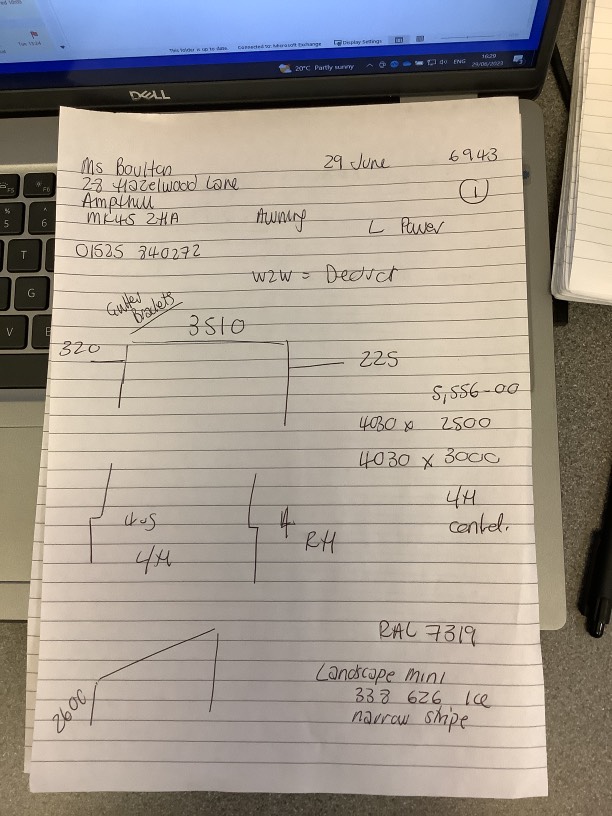 This folder is up to date.
Connected to: Microsoft Exchange
Display Settings
20°C Partly sunny
ENG
16:29
29/06/2023
DELL
F5
F6
%
5
^
6
T
G
V
Ms Boulton 29 June 6943
28 Hazelwood Lane 1
Ampthill
MK45 2HA Awning L Power
01525 840272
W2W = Deduct
Gutter
Brackets
3510
320
225
5,556-00
4030 x 2500
4030 x 3000
4H
RH
RAL 7319
Landscape mini
338 626 Ice
narrow stripe
2600